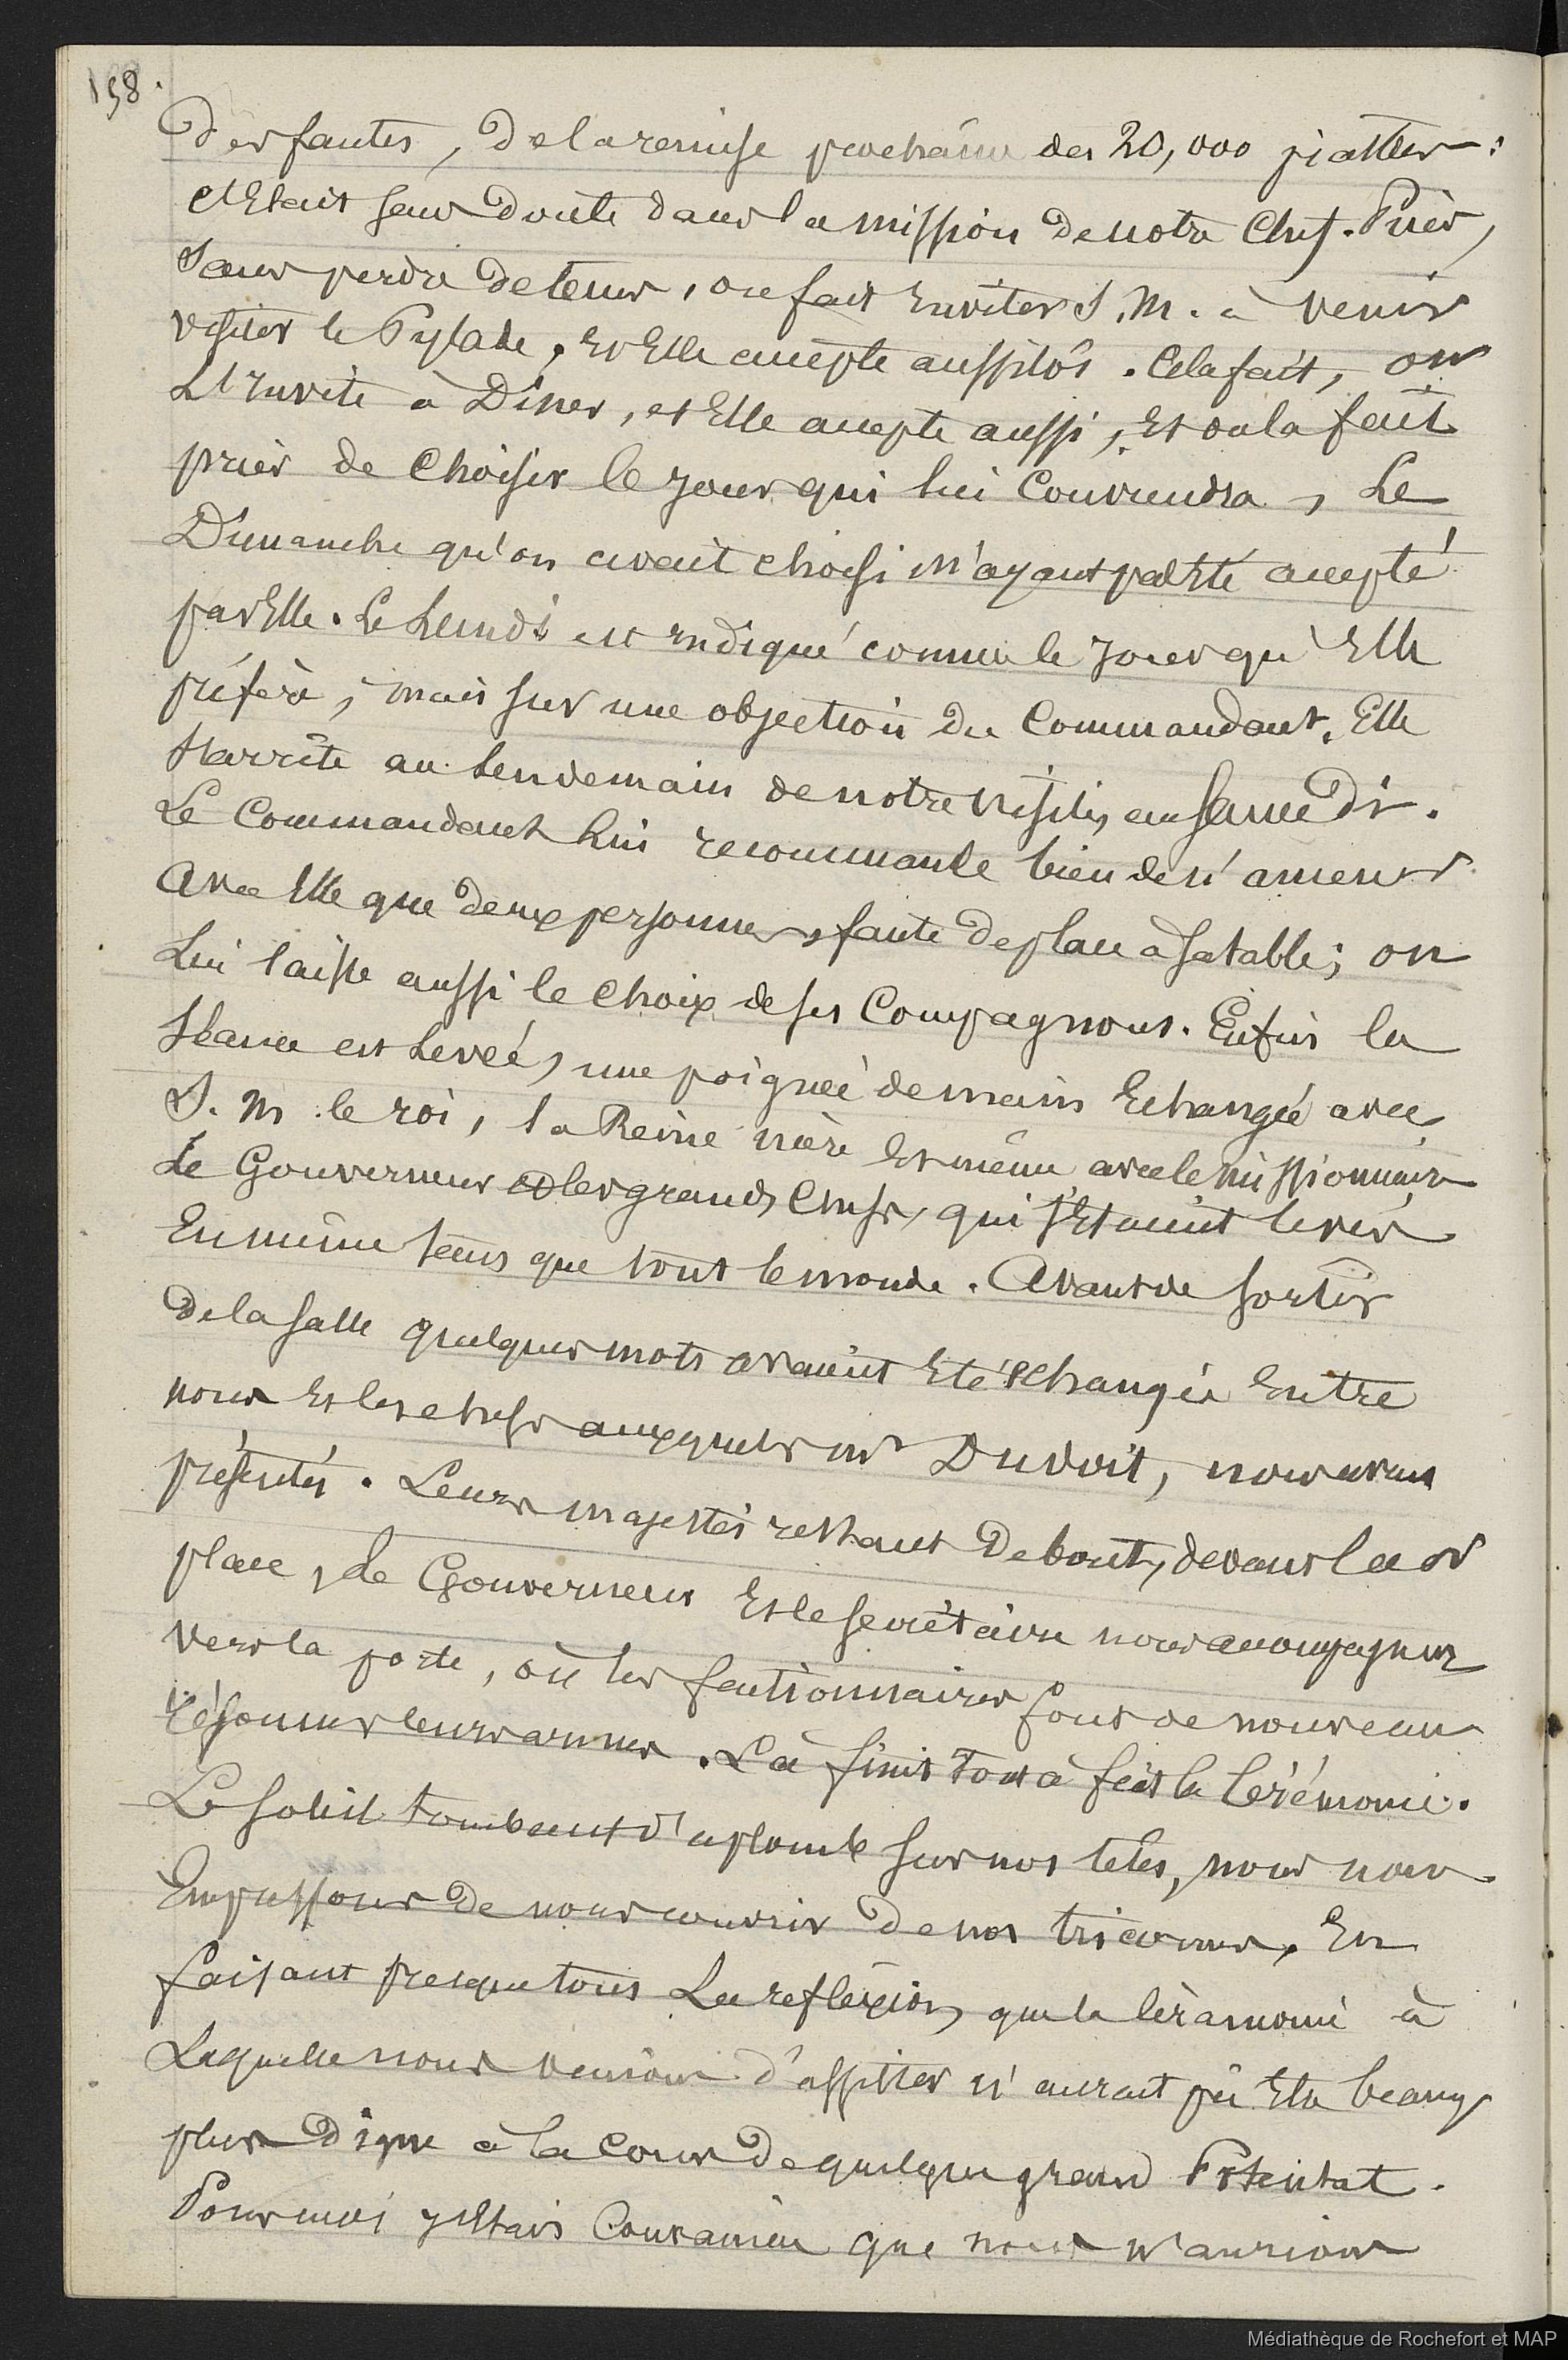 158.
des fautes, de la remise prochaine des 20,000 piastres:
c'était sans doute dans la mission de notre Chef. Puis,
sans perdre de tems, on fait inviter S. M. à venir
visiter le Pylade, et Elle accepte aussitôt. Cela fait, on
L'invite à Diner, et Elle accepte aussi, Et on la fait
prier de Choisir le jour qui lui Conviendra, Le
Dimanche qu'on avait choisi n'ayant pas été accepté
par Elle. Le Lundi est indiqué comme le jour qu'Elle
préfère, mais sur une objection du Commandant, Elle
s'arrête au lendemain de notre visite, au samedi.
Le Commandant lui recommande bien de n'amener
avec Elle que deux personnes, faute de place à sa table; on
Lui laisse aussi le choix de ses Compagnons. Enfin la
séance est Levée, une poignée de mains Echangée avec
S. M. le roi, la Reine mère Et même avec le missionnaire
Le Gouverneur et les grands Chefs, qui s'étaient levés
En même tems que tout le monde. Avant de sortir
de la salle quelques mots avaient été échangés Entre
nous Et les chefs auxquels mr Dudoit, nous avait
présentés. Leurs majestés restant Debout, devant leur
place, Le Gouverneur Et le secrétaire nous accompagnent
vers la porte, où les factionnaires font de nouveau
résonner leurs armes. Là finit tout à fait la Cérémonie.
Le soleil tombant d'aplomb sur nos têtes, nous nous
Empressons de nous couvrir de nos tricornes, En
faisant presque tous La reflexion, que la cérémonie à
Laquelle nous venions d'assister n'aurait pû être beaucp
plus Digne à la Cour de quelque grand Potentat.
Pour moi j'étais Convaincu que nous n'aurions
Médiathèque de Rochefort et MAP